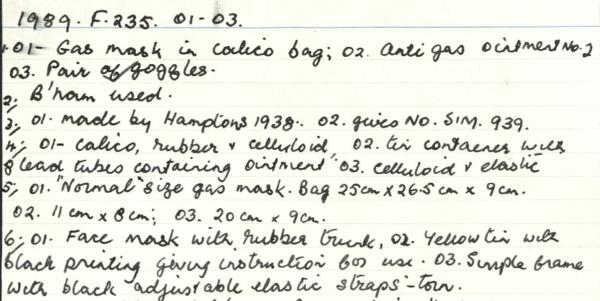 1989. F.235. 01-03.
1. 01- Gas mask in calico bag; 02. Anti gas ointment No. 2
03. Pair of goggles.
2; B'ham used.
3; 01. made by Hamptons 1938. 02. gives NO. SIM. 939.
4; 01- calico, rubber & celluloid, 02. tin container with
8 lead tubes containing ointment 03. celluloid & elastic
5; 01. "Normal" size gas mask. Bag 25cm x 26.5cm x 9cm.
02. 11cm x 8cm; 03. 20cm x 9cm.
6; 01. Face mask with rubber trunk, 02. Yellow tin with
black printing giving instruction for use. 03. Simple frame
with black adjustable elastic straps - torn.